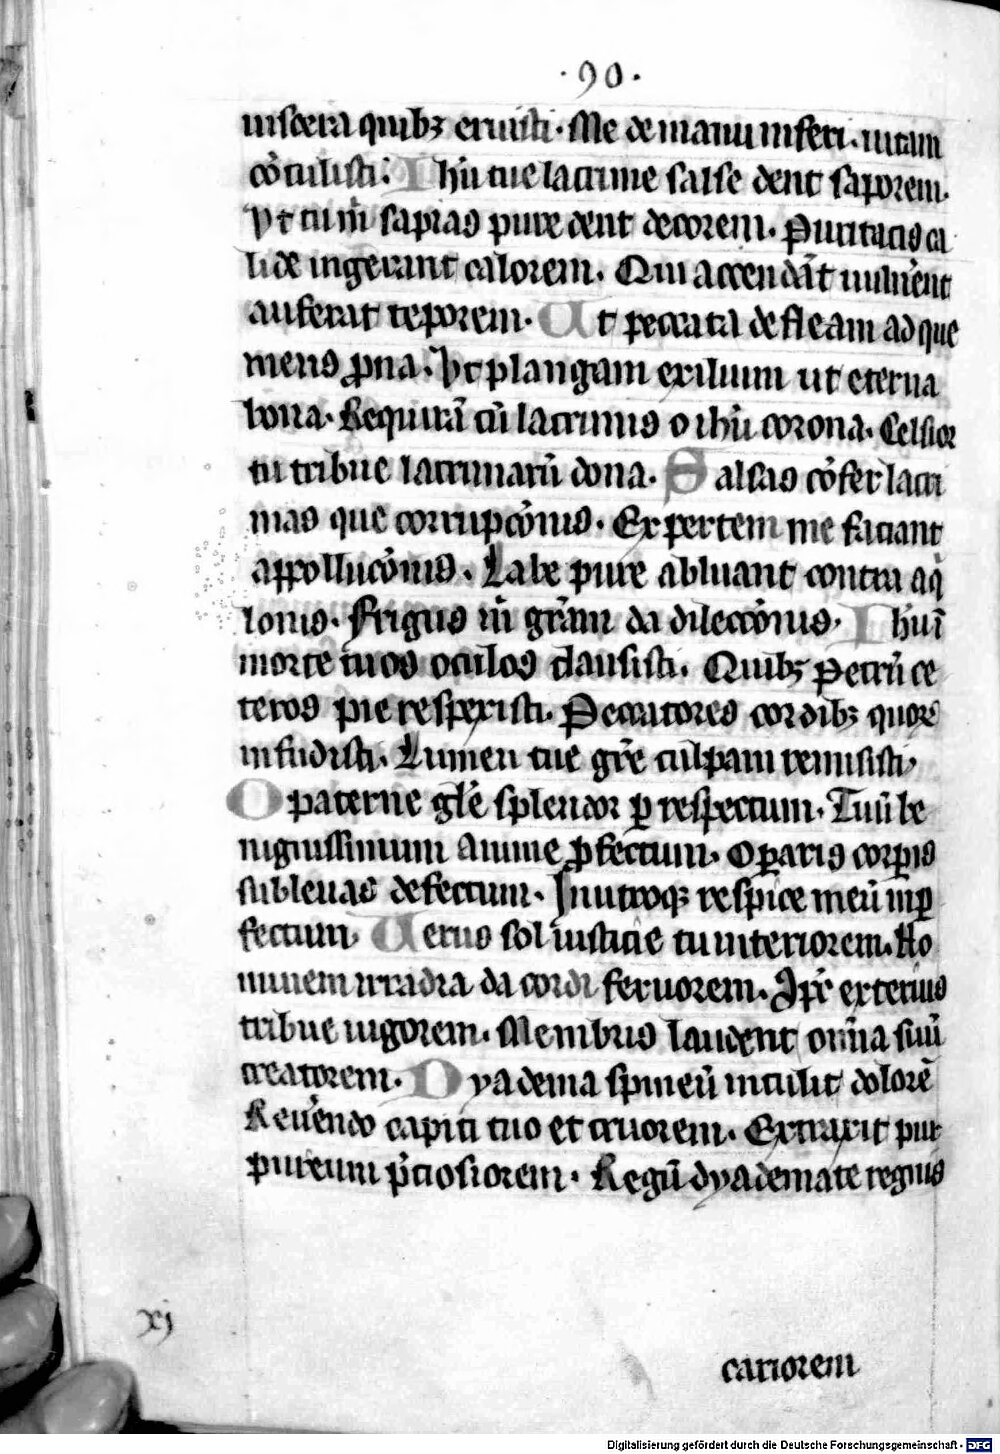 · 90 ·
uiscera quibꝫ eruisti · Me de manu inferi · uitam
cōtulisti · Ihū tue lacrime salse dent saporem ·
Vt cum sapias pure dent decorem · Puritatis ca
lide ingerant calorem · Qui accendāt
auferat teporem · Ut peccata defleam ad que
mens ꝓna · Vt plangam exilium ut eterna
bona · Requirā cū lacrimis o ihū corona · Celsior
tu tribue lacrimarū dona · Salsas cōfer lacri
mas que corrupcōnis · Expertem me faciant
appollucōnis · Labe pure abluant contra aq̄
lonis · Frigus in grām da dileccōnis · Ihū ī
morte tuos oculos clausisti · Quibꝫ Petrū ce
teros pie respexisti · Peccatores cordibꝫ quorꝫ
infudisti · Lumen tue grē culpam remisisti
O paterne glē splendor ꝑ respectum · Tuū be
nignissimum anime ꝓfectum · Oꝑaris corꝑis
subleuas defectum · In utroqꝫ respice meū inꝑ
fectum Uerus sol iusticie tu interiorem · Ho
minem irradia da cordi feruorem · Ipē exterius
tribue uigorem · Membris laudent om̄ia suū
creatorem · Dyadema spineū intulit dolorē
Reuēndo capiti tuo et cruorem · Extraxit pur
pureum p̄ciosiorem · Regū dyademate regnis
xj
cariorem
Digitalisierung gefördert durch die Deutsche Forschungsgemeinschaft - DFG